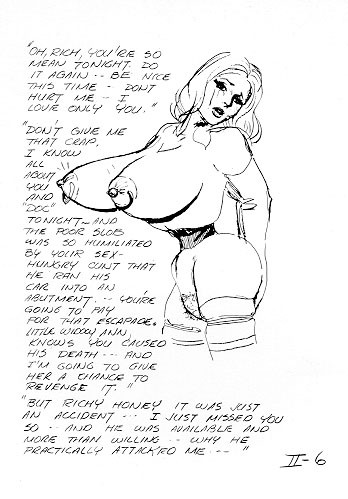 "OH, RICH, YOU'RE SO
MEAN TONIGHT. DO
IT AGAIN -- BE NICE
THIS TIME - DON'T
HURT ME - I
LOVE ONLY YOU."
"DON'T GIVE ME
THAT CRAP,
I KNOW
ALL
ABOUT
YOU
AND
"DOC"
TONIGHT -- AND
THE POOR SLOB
WAS SO HUMILIATED
BY YOUR SEX-
HUNGRY CUNT THAT
HE RAN HIS
CAR INTO AN
ABUTMENT. -- YOU'RE
GOING TO PAY
FOR THAT ESCAPADE.
LITTLE WIDOW ANN
KNOWS YOU CAUSED
HIS DEATH --- AND
I'M GOING TO GIVE
HER A CHANCE TO
REVENGE IT."
"BUT RICHY HONEY IT WAS JUST
AN ACCIDENT --- I JUST MISSED YOU
SO -- AND HE WAS AVAILABLE AND
MORE THAN WILLING -- WHY HE
PRACTICALLY ATTACK'ED ME --- "
II-6